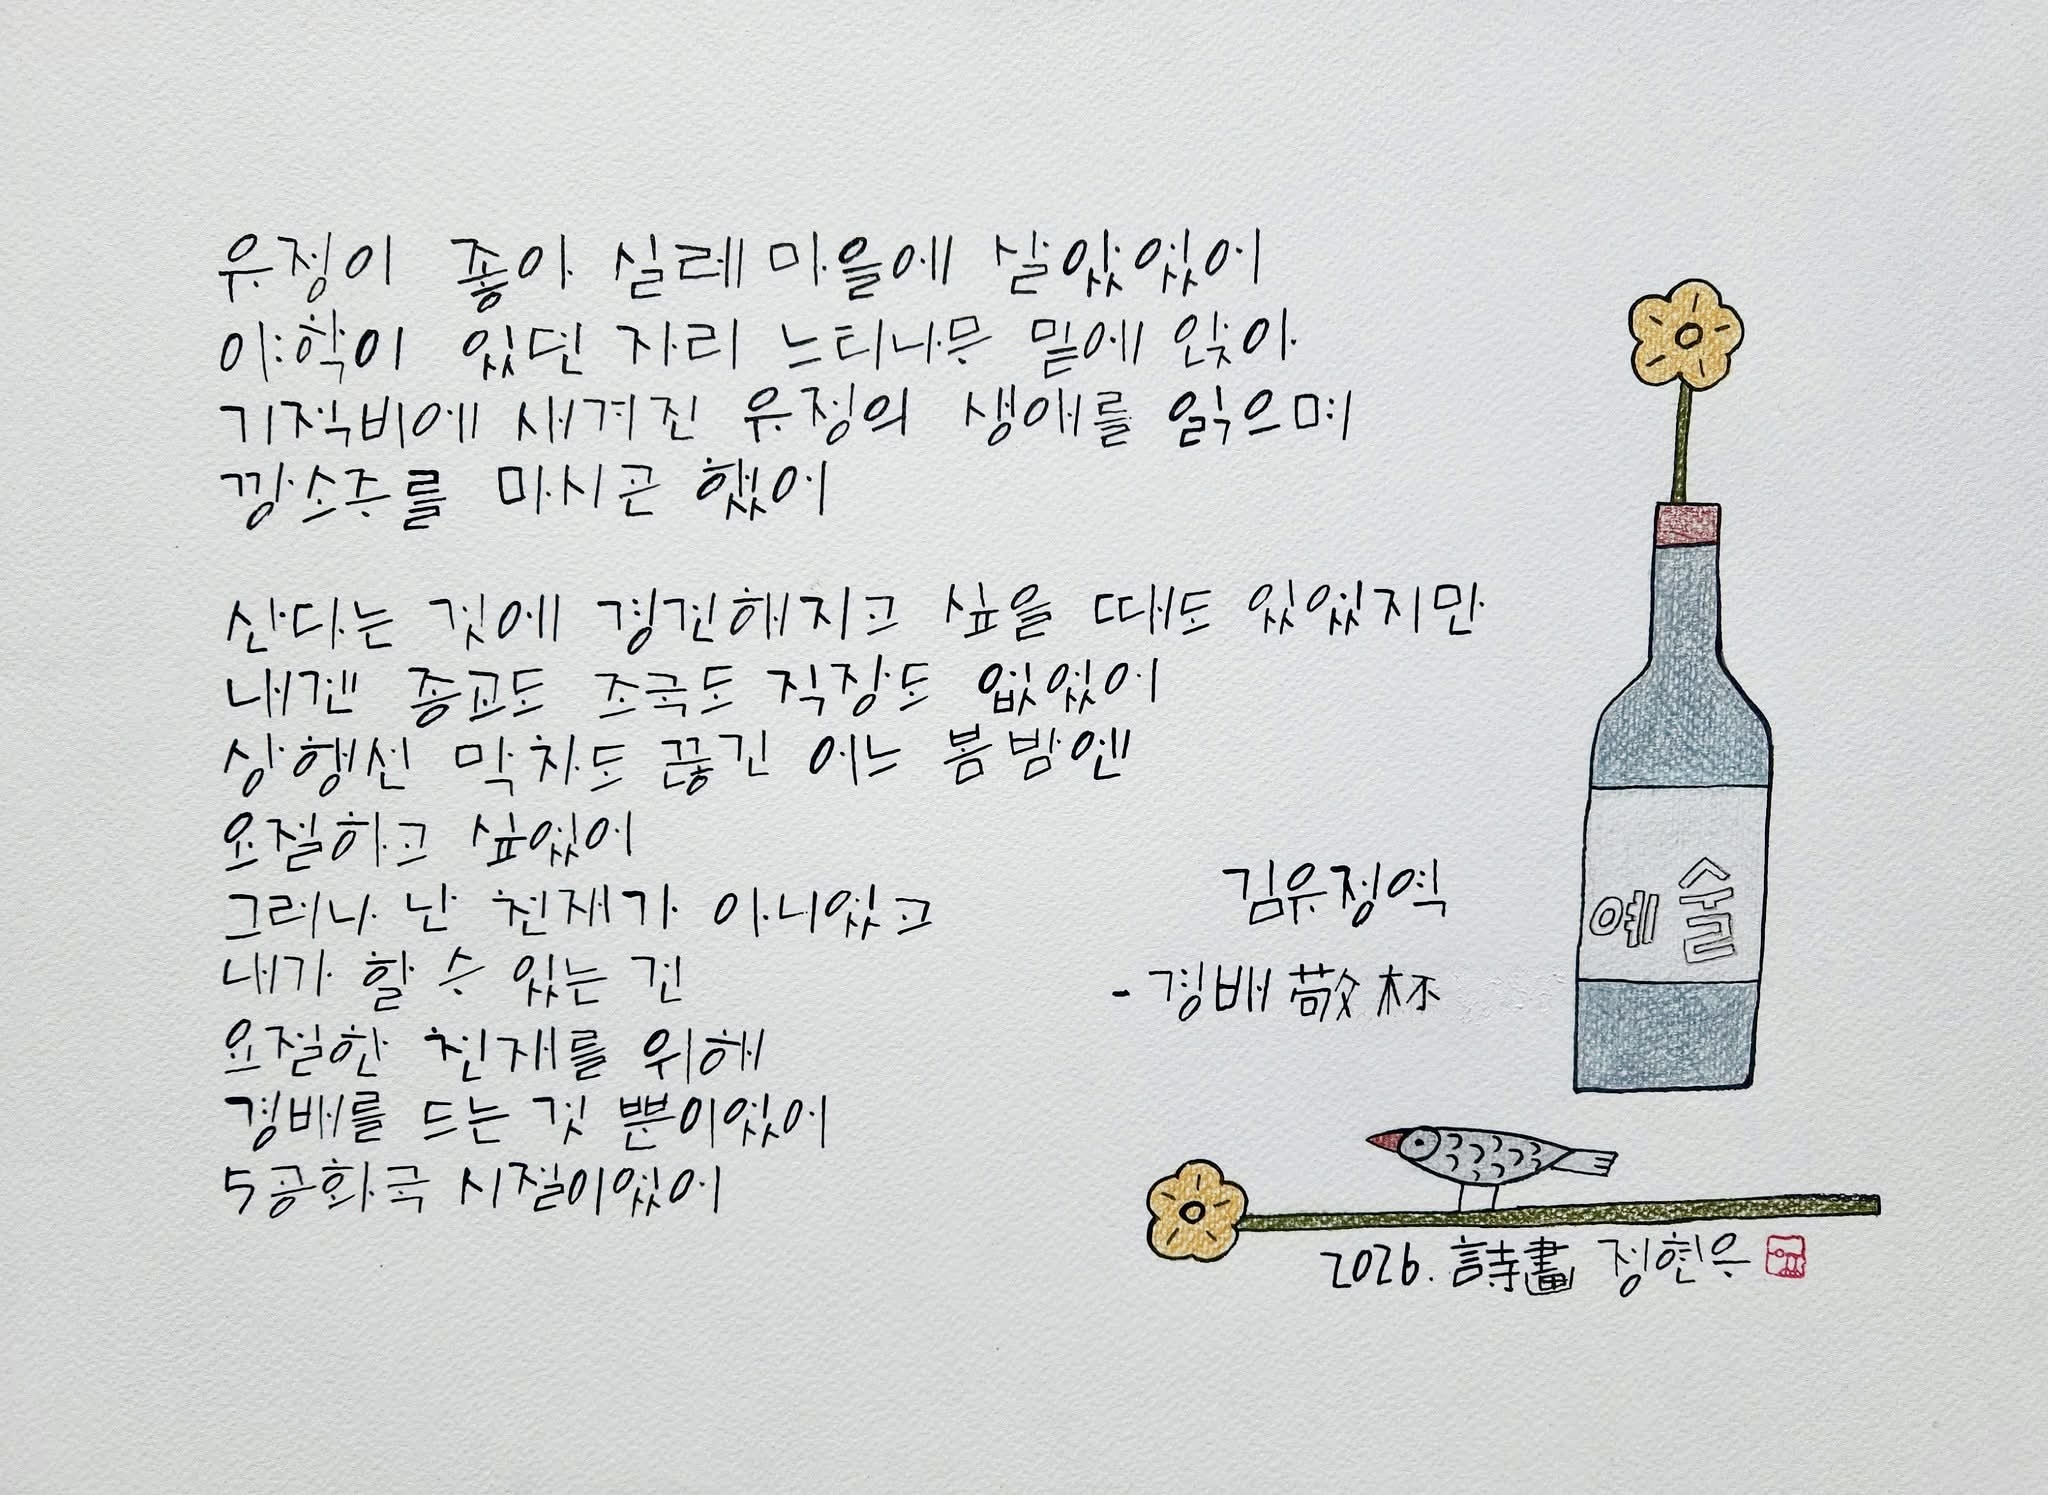 유정이 좋아 실레마을에 살았었어
야학이 있던 자리 느티나무 밑에 앉아
기적비에 새겨진 유정의 생애를 읽으며
깡소주를 마시곤 했어
산다는 것에 경건해지고 싶을 때도 있었지만
내겐 종교도 조국도 직장도 없었어
상행선 막차도 끊긴 어느 봄밤엔
요절하고 싶었어
그러나 난 천재가 아니었고
내가 할 수 있는 건
요절한 천재를 위해
경배를 드는 것 뿐이었어
5공화국 시절이었어
김유정역
- 경배 敬杯
예술
2026. 詩畫 정현우